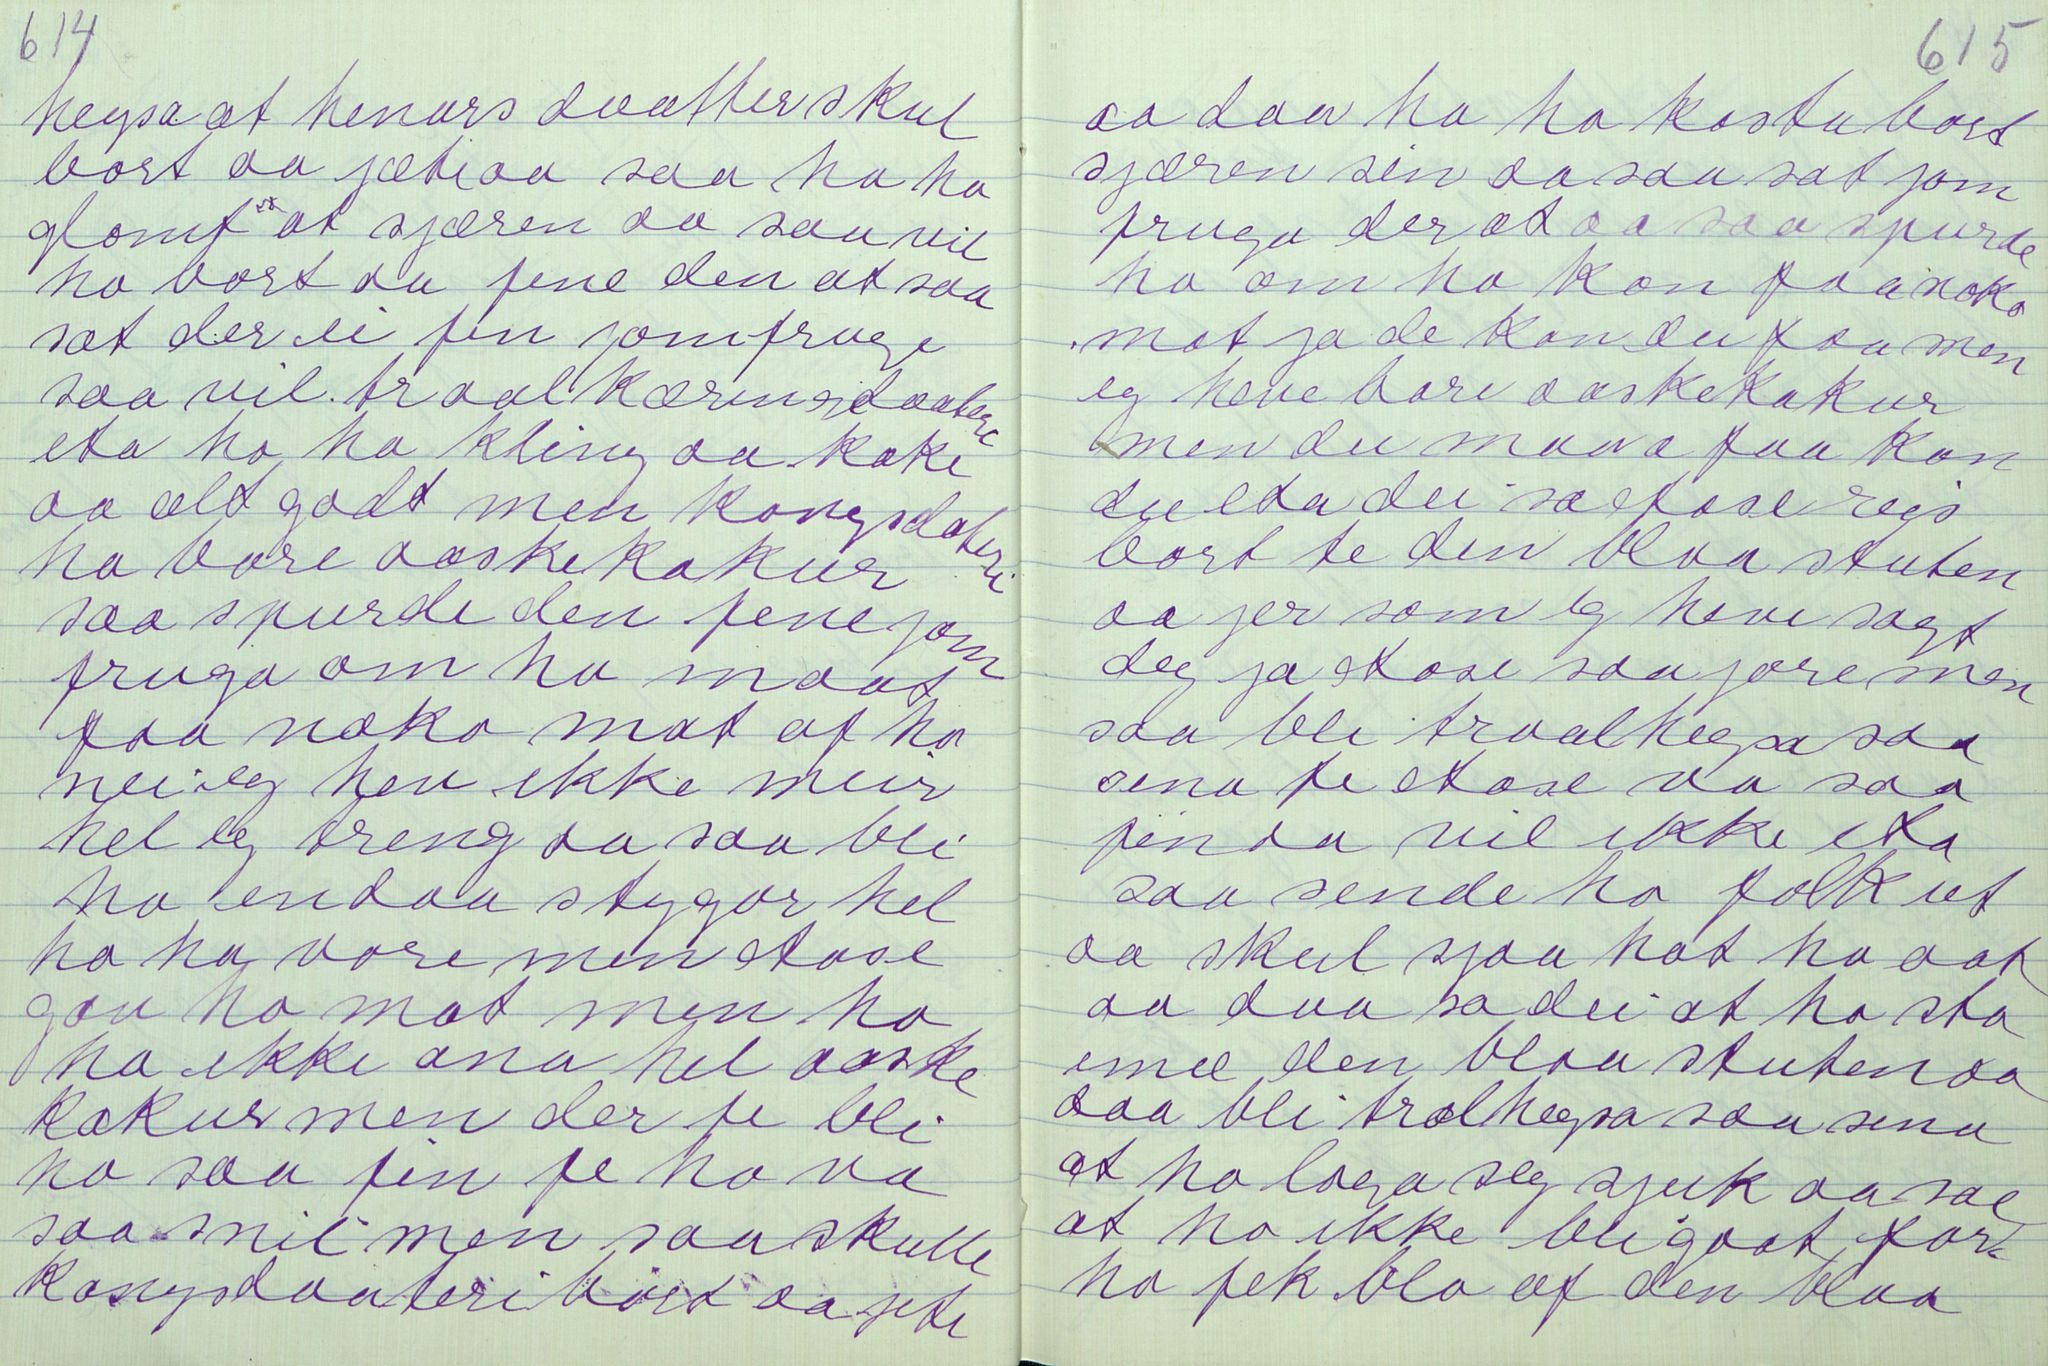 614
hegsa at henars daatter skul
bort aa jæte aa saa ha ho
glomt at sjæren aa saa vil
ho bort aa fene den at saa
sat der ei fin jomfruge
saa vil traalkærensdaateri
eta ho ha kling aa kake
aa alt godt men kongsdoteri
ha bare aaskekakur
saa spurde den fene jom
fruga om ho maat
faa noko mat af ho
nei eg hev ikke meir
hel eg treng aa saa blei
ho endaa stygar hel
ho ha vore men Aase
gav ho mat men ho
ha ikke ana hel aaske
kakur men der te blei
ho saa fin te ho va
saa snil men saa skulle
kongsdaateri bort aa jete
615
aa daa ha ho kasta bort
sjæren sin aa saa sat jom
fruga der at aa saa spurde
ho om ho kan faa noko
mat ja de kan du faa men
eg heve bare aaskekakur
men du maa faa kan
du eta dei sa Aase reis
bort te den blaa stuten
aa jer som eg heve sagt
deg ja Aase saa jore men
saa blei traalhegsa saa
sena te Aase va saa
fin aa vil ikke eta
saa sende ho folk ut
aa skul sjaa hot ho aat
aa daa sa dei at ho sto
imel den blaa stuten aa
daa blei tralhegsa saa sena
at ho loga seg sjuk aa sae
at ho ikke blei goat før
ho fek blo af den blaa